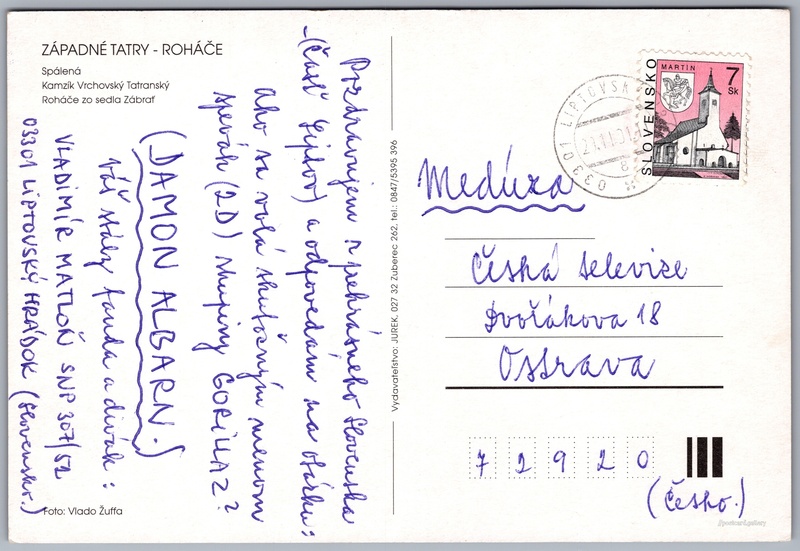 ZÁPADNÉ TATRY - ROHÁČE
Spálená
Kamzík Vrchovský Tatranský
Roháče zo sedla Zábrať
Pozdravujem z prekrásneho Slovenska
(časť Lijdov) a odpovedám na otázku:
Ako sa volá skutočným menom
spevák (2D) skupiny GORILLAZ?
(DAMON ALBARN.)
váš stály fanda a divák:
VLADIMÍR MATLOŇ SNP 307/52
03301 LIPTOVSKÝ HRÁDOK (Slovensko.)
Foto: Vlado Žuffa
Vydavateľstvo: JUREK, 027 32 Zuberec 262, tel.: 0847/5395 396
03301 LIPTOVSK
8
SLOVENSKO
MARTIN
7
Sk
Medúza
Česká televize
Dvořákova 18
Ostrava
7 2 9 2 0
(Česko.)
postcard.gallery